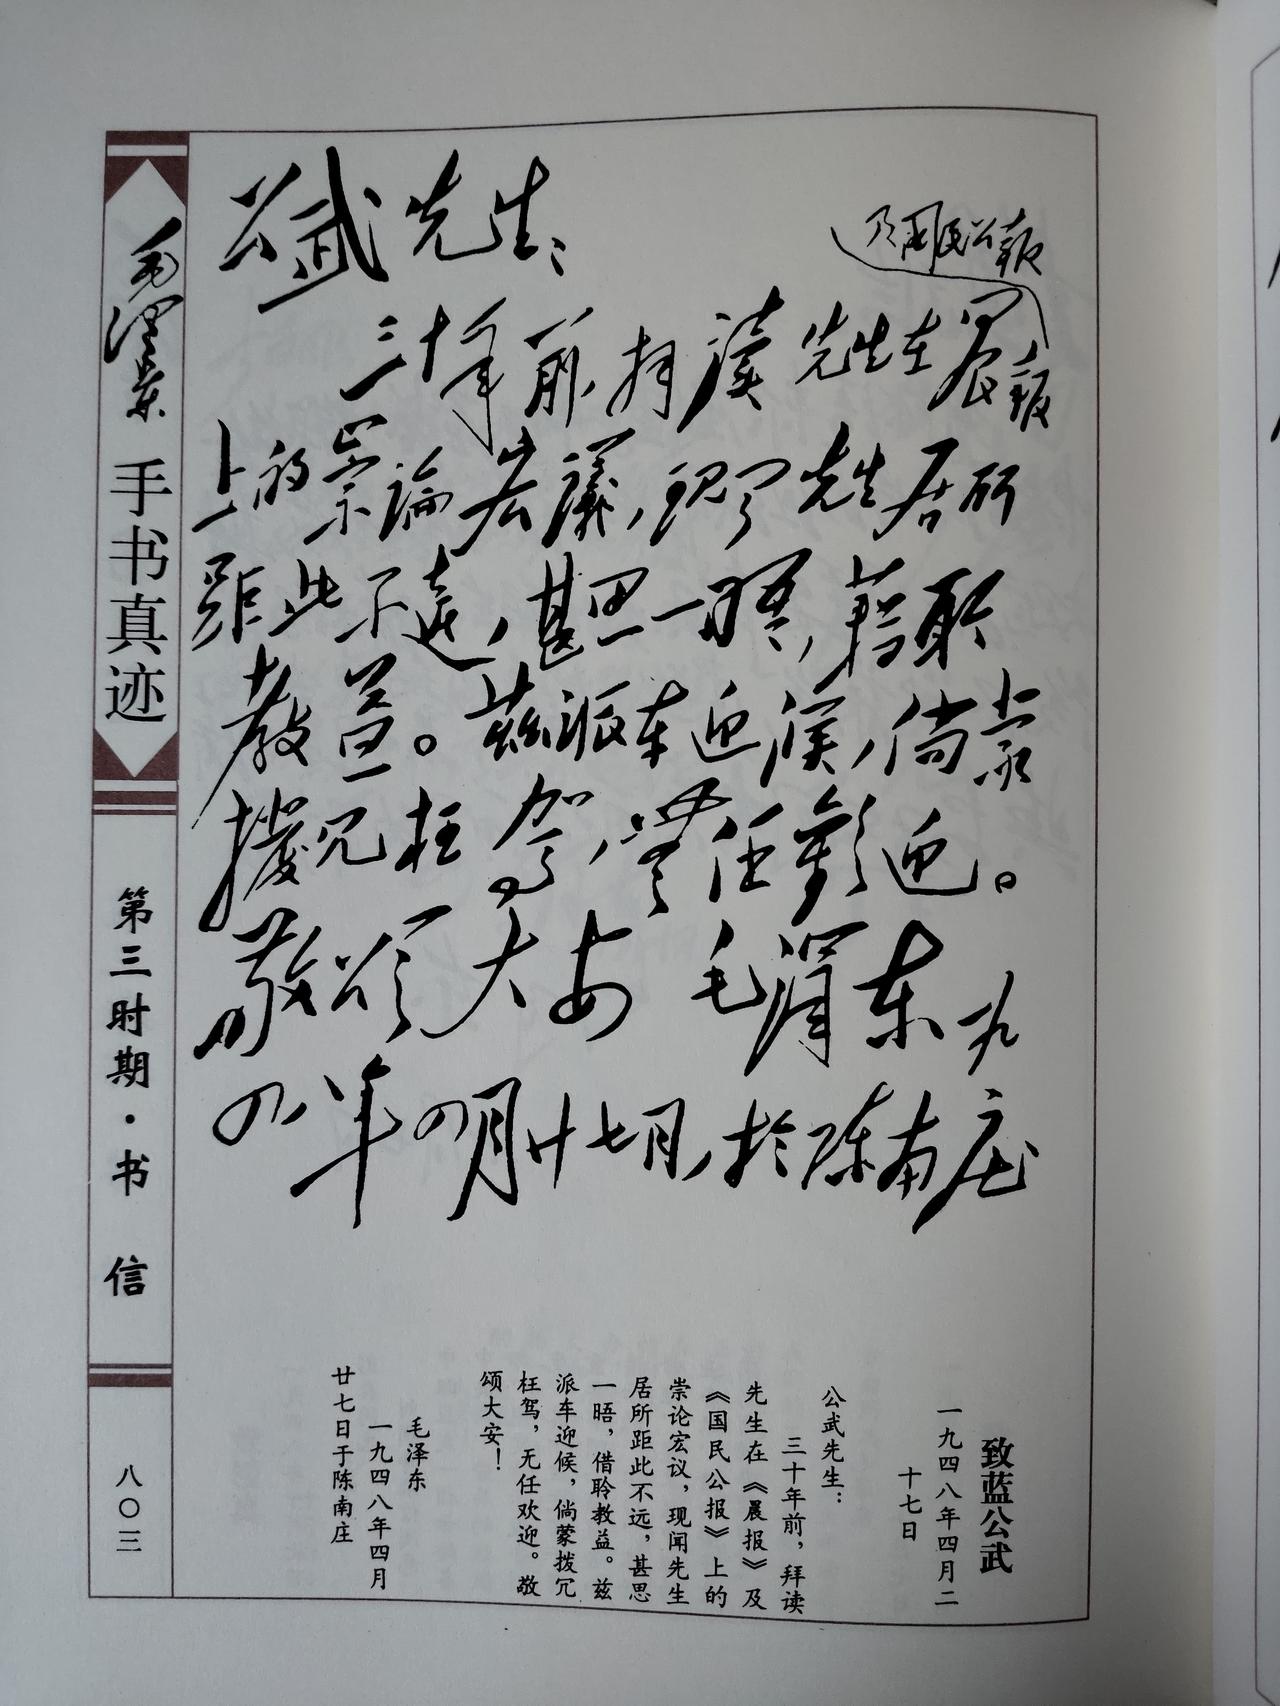 毛泽东
手书真迹
第三时期·书信
八〇三
公武先生：
及国民公报
三十年前，拜读先生在晨报
上的崇论宏议，现闻先生居所
距此不远，甚思一晤，藉聆
教益。兹派车迎候，倘蒙
拨冗枉驾，无任欢迎。
敬颂大安 毛泽东 一九
四八年四月廿七日，于陈南庄
致蓝公武
一九四八年四月二
十七日
公武先生：
三十年前，拜读
先生在《晨报》及
《国民公报》上的
崇论宏议，现闻先生
居所距此不远，甚思
一晤，借聆教益。兹
派车迎候，倘蒙拨冗
枉驾，无任欢迎。敬
颂大安！
毛泽东
一九四八年四月
廿七日于陈南庄